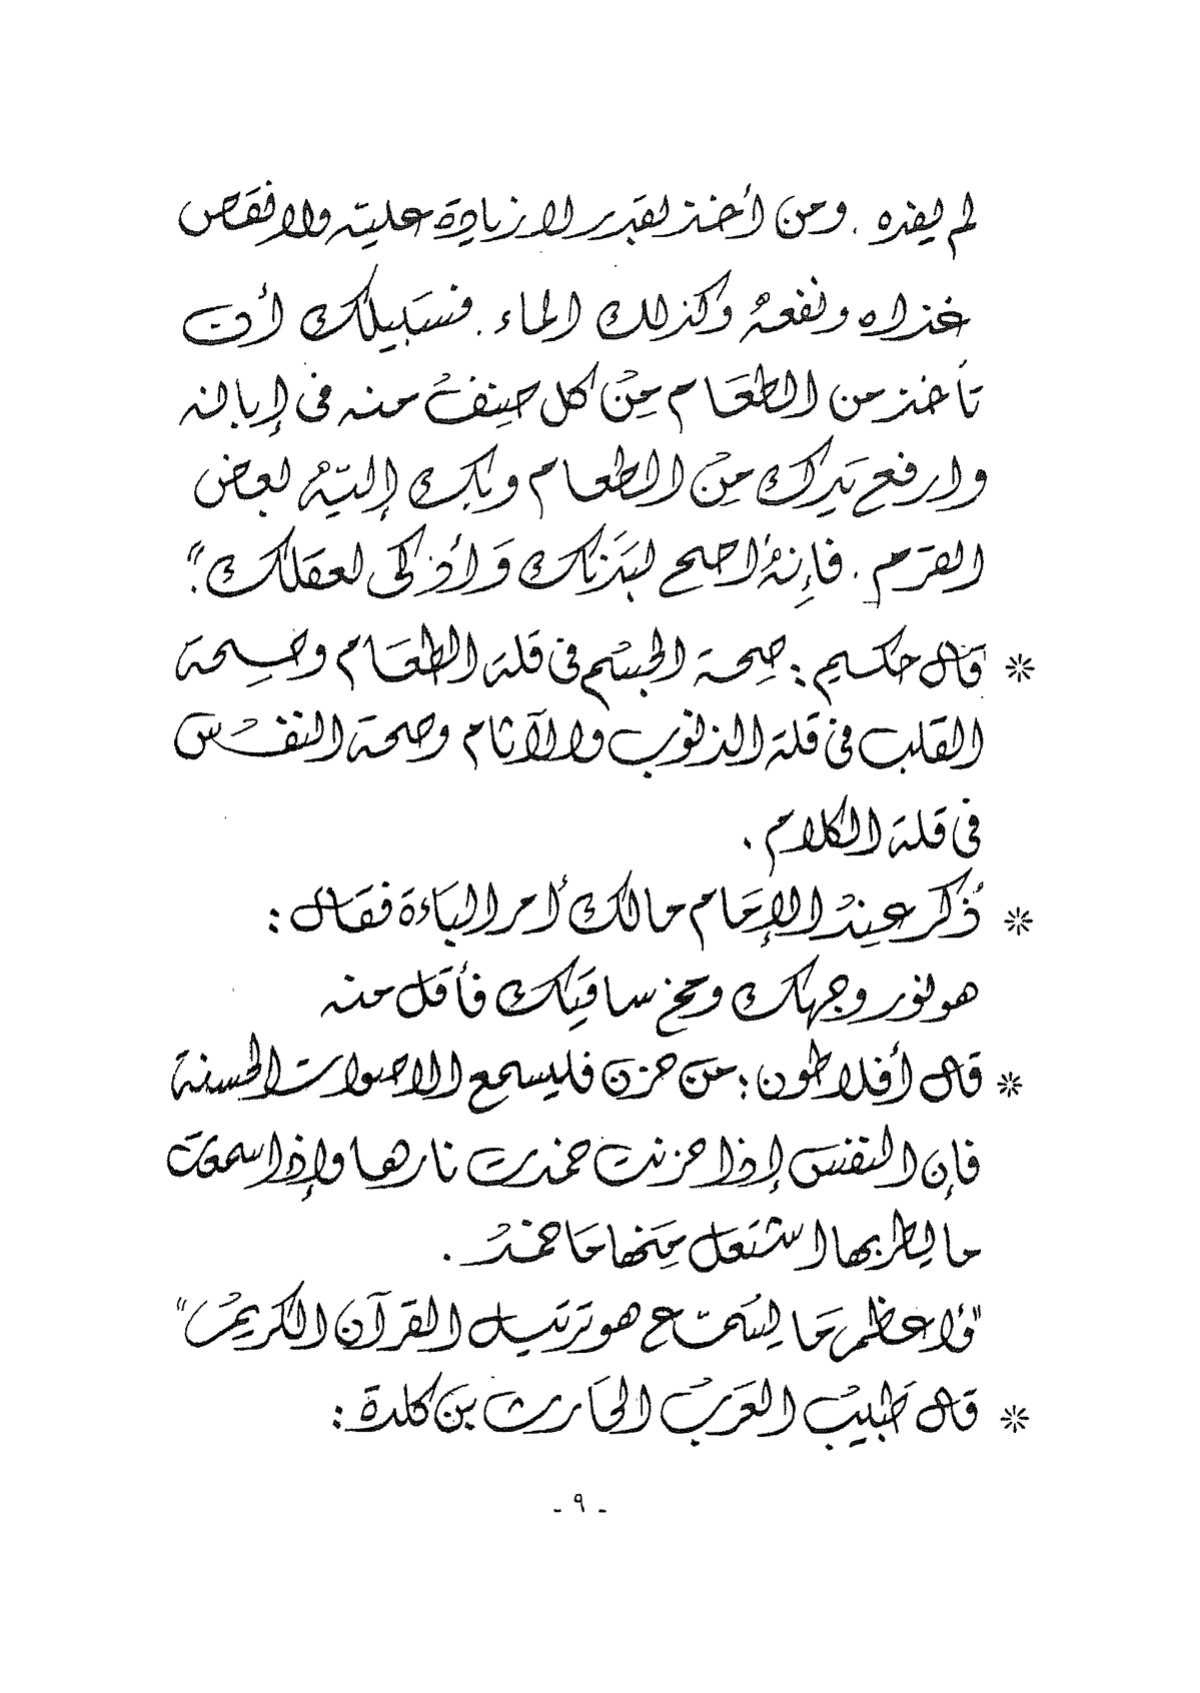 لم يغذه . ومن أخذ بقدر لا زيادة عليه ولا نقص
غذاه ونفعه وكذلك الماء . فسبيلك أن
تأخذ من الطعام من كل صنف منه في إبانه
وارفع يدك من الطعام وبك إليه بعض
القرم . فإنه أصح لبدنك وأذكى لعقلك".
* قال حكيم : صحة الجسم في قلة الطعام وصحة
القلب في قلة الذنوب والآثام وصحة النفس
في قلة الكلام .
* ذُكر عند الإمام مالك أمر الباءة فقال :
هو نور وجهك ومخ ساقيك فأقل منه
* قال أفلاطون : من حزن فليسمع الاصوات الحسنة
فإن النفس إذا حزنت خمدت نارها وإذا سمعت
ما يطربها اشتعل منها ما خمد .
"وأعظم ما يسمع هو ترتيل القرآن الكريم"
* قال طبيب العرب الحارث بن كلدة :
- ٩ -